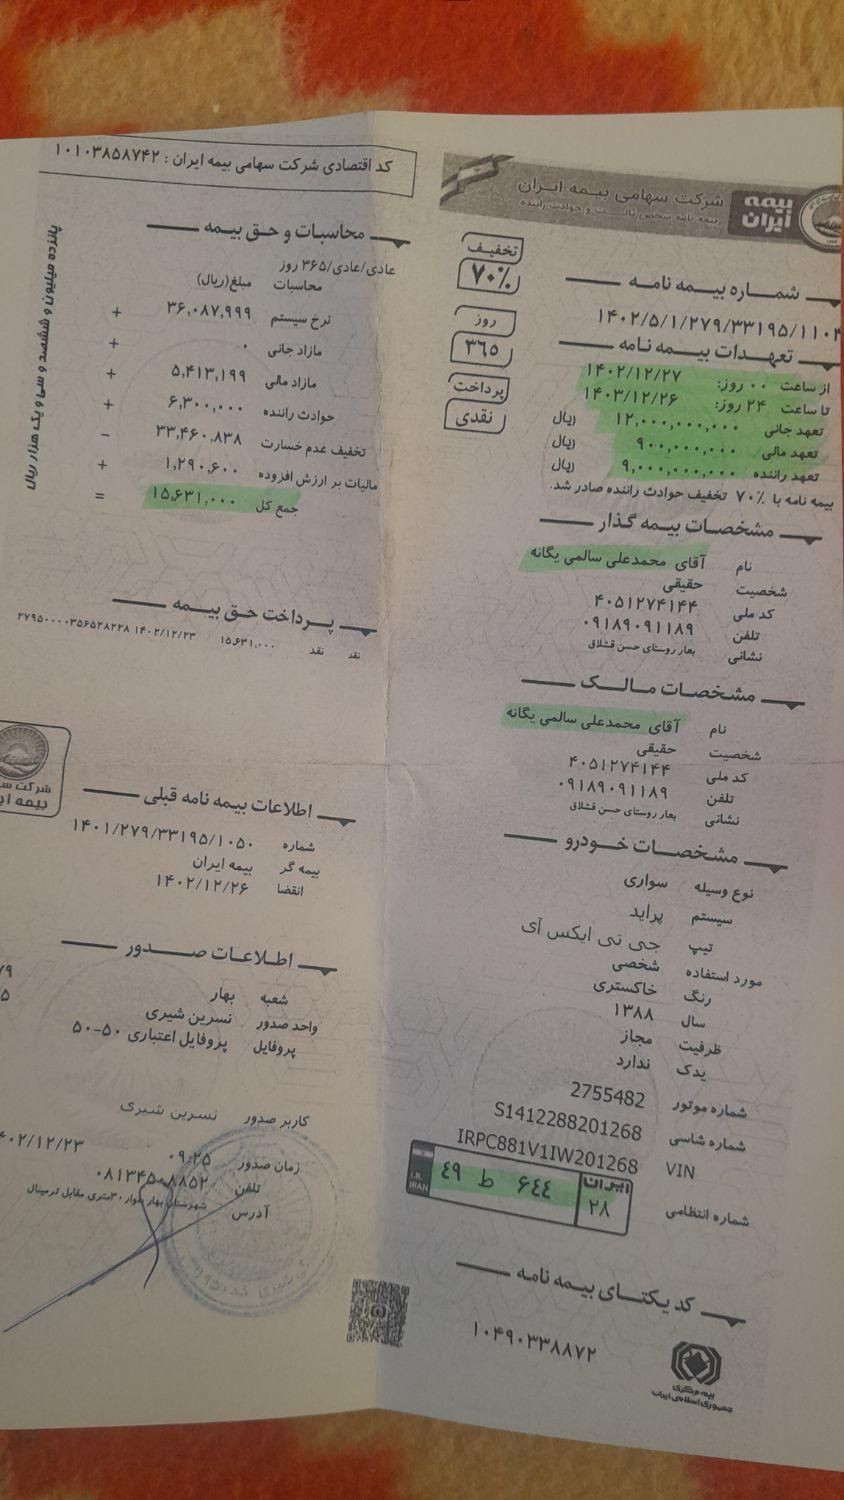 بیمه ایران
شرکت سهامی بیمه ایران
بیمه نامه شخص ثالث و حوادث راننده
شماره بیمه نامه
۱۴۰۲/۵/۱/۲۷۹/۳۳۱۹۵/۱۱۰۴
تخفیف
۷۰%
روز
۳۶۵
پرداخت
نقدی
تعهدات بیمه نامه
از ساعت ۰۰ روز: ۱۴۰۲/۱۲/۲۷
تا ساعت ۲۴ روز: ۱۴۰۳/۱۲/۲۶
تعهد جانی ۱۲,۰۰۰,۰۰۰,۰۰۰ ریال
تعهد مالی ۹۰۰,۰۰۰,۰۰۰ ریال
تعهد راننده ۹,۰۰۰,۰۰۰,۰۰۰ ریال
بیمه نامه با ۷۰% تخفیف حوادث راننده صادر شد.
مشخصات بیمه گذار
نام آقای محمدعلی سالمی یگانه
شخصیت حقیقی
کد ملی ۴۰۵۱۲۷۴۱۴۴
تلفن ۰۹۱۸۹۰۹۱۱۸۹
نشانی بهار روستای حسن قشلاق
مشخصات مالک
نام آقای محمدعلی سالمی یگانه
شخصیت حقیقی
کد ملی ۴۰۵۱۲۷۴۱۴۴
تلفن ۰۹۱۸۹۰۹۱۱۸۹
نشانی بهار روستای حسن قشلاق
مشخصات خودرو
نوع وسیله سواری
سیستم پراید
تیپ جی تی ایکس آی
مورد استفاده شخصی
رنگ خاکستری
سال ۱۳۸۸
ظرفیت مجاز
یدک ندارد
شماره موتور 2755482
شماره شاسی S1412288201268
VIN IRPC881V1IW201268
شماره انتظامی ایران ۲۸ ۶۴۴ ط ۴۹ I.R. IRAN
کد یکتای بیمه نامه
۱۰۴۹۰۳۳۸۸۷۲
بیمه مرکزی
جمهوری اسلامی ایران
کد اقتصادی شرکت سهامی بیمه ایران : ۱۰۱۰۳۸۵۸۷۴۲
محاسبات و حق بیمه
عادی/عادی/۳۶۵ روز
محاسبات مبلغ(ریال)
نرخ سیستم ۳۶,۰۸۷,۹۹۹ +
مازاد جانی ۰ +
مازاد مالی ۵,۴۱۳,۱۹۹ +
حوادث راننده ۶,۳۰۰,۰۰۰ +
تخفیف عدم خسارت ۳۳,۴۶۰,۸۳۸ −
مالیات بر ارزش افزوده ۱,۲۹۰,۶۰۰ +
جمع کل ۱۵,۶۳۱,۰۰۰ =
پانزده میلیون و ششصد و سی و یک هزار ریال
پرداخت حق بیمه
نقد نقد ۱۵,۶۳۱,۰۰۰ ۱۴۰۲/۱۲/۲۳ ۲۷۹۵۰۰۰۰۳۵۶۵۲۸۲۲۸
بیمه
اطلاعات بیمه نامه قبلی
شماره ۱۴۰۱/۲۷۹/۳۳۱۹۵/۱۰۵۰
بیمه گر بیمه ایران
انقضا ۱۴۰۲/۱۲/۲۶
اطلاعات صدور
شعبه بهار
واحد صدور نسرین شیری
پروفایل پروفایل اعتباری ۵۰-۵۰
کاربر صدور نسرین شیری
زمان صدور ۰۹:۲۵
تلفن ۰۸۱۳۴۵۰۸۸۵۲
آدرس شهرستان بهار بلوار ۳۰متری مقابل ترمینال